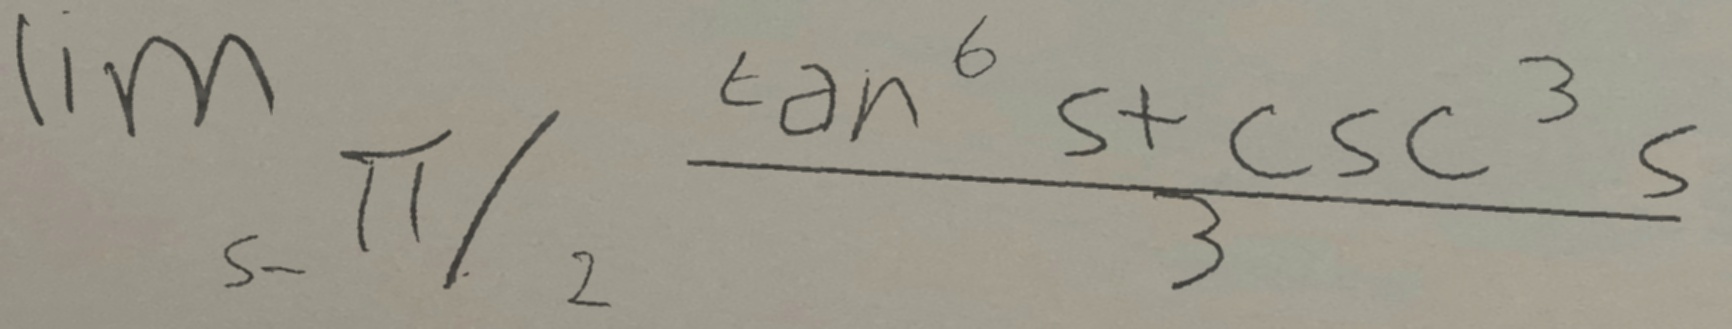 lim s-π/2 tan^6 s+csc^3 s / 3